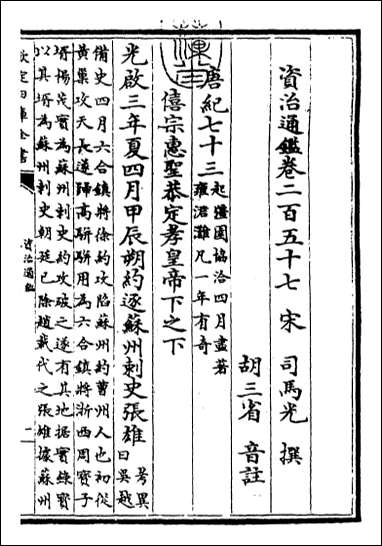 資治通鑑卷二百五十七　宋　司馬光　撰
胡三省　音註
唐紀七十三 起彊圉協洽四月盡著
雍涒灘凡一年有奇
僖宗惠聖恭定孝皇帝下之下
光啟三年夏四月甲辰朔約逐蘇州刺史張雄 考異
曰吳越
備史四月六合鎮將徐約攻陷蘇州約曹州人也初從
黃巢攻天長遂歸高駢駢用為六合鎮將浙西周寶子
壻楊茂實為蘇州刺史約攻破之遂有其地據實錄寶
以其壻為蘇州刺史朝廷已除趙載代之張雄據蘇州
欽定四庫全書
資治通鑑